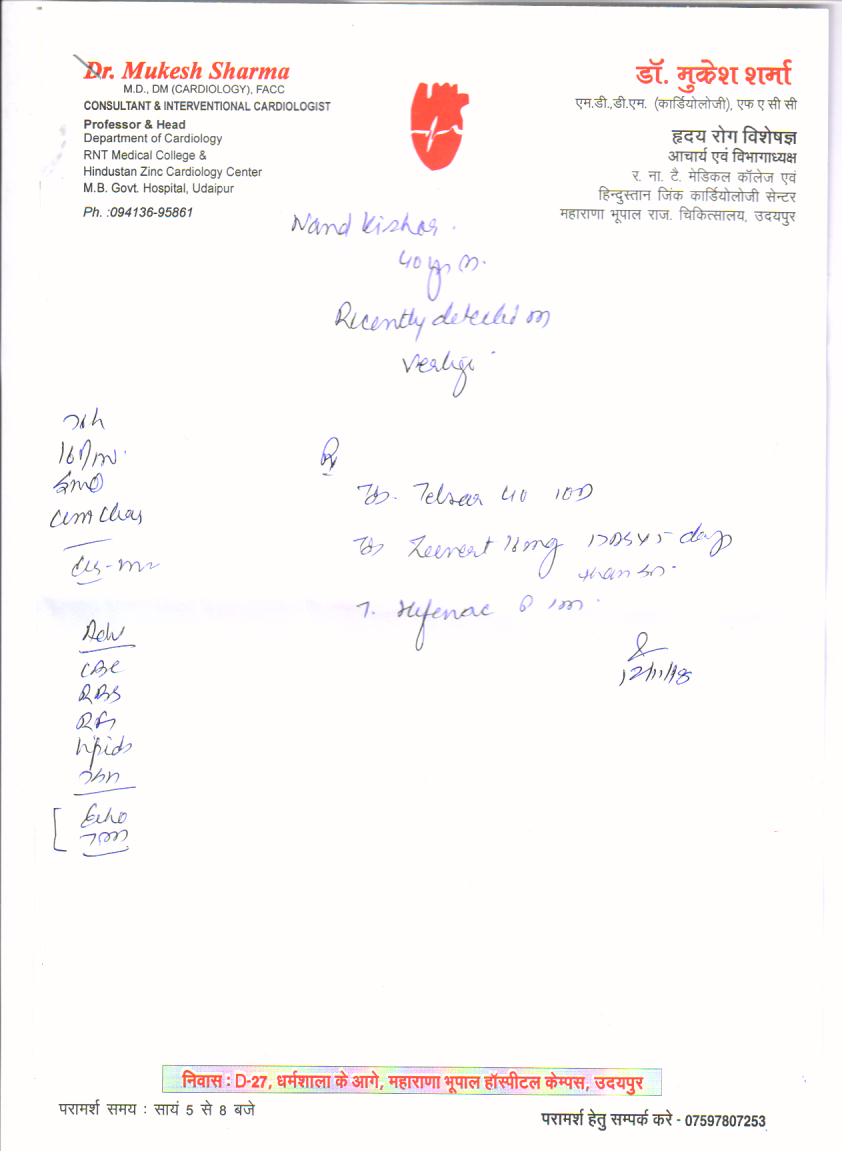 Dr. Mukesh Sharma
M.D., DM (CARDIOLOGY), FACC
CONSULTANT & INTERVENTIONAL CARDIOLOGIST
Professor & Head
Department of Cardiology
RNT Medical College &
Hindustan Zinc Cardiology Center
M.B. Govt. Hospital, Udaipur
Ph. :094136-95861
डॉ. मुकेश शर्मा
एम.डी.,डी.एम. (कार्डियोलोजी), एफ ए सी सी
हृदय रोग विशेषज्ञ
आचार्य एवं विभागाध्यक्ष
र. ना. टै. मेडिकल कॉलेज एवं
हिन्दुस्तान जिंक कार्डियोलोजी सेन्टर
महाराणा भूपाल राज. चिकित्सालय, उदयपुर
Nand Kishor.
40 yr m.
Recently detected
Vertigo
Rx
Telsar 40 1OD
16mg 5 day
T. Hifenac
12/11/18
Adv
CBC
RBS
RFT
Lipids
[ Echo
TMT
निवास : D-27, धर्मशाला के आगे, महाराणा भूपाल हॉस्पीटल केम्पस, उदयपुर
परामर्श समय : सायं 5 से 8 बजे
परामर्श हेतु सम्पर्क करे - 07597807253